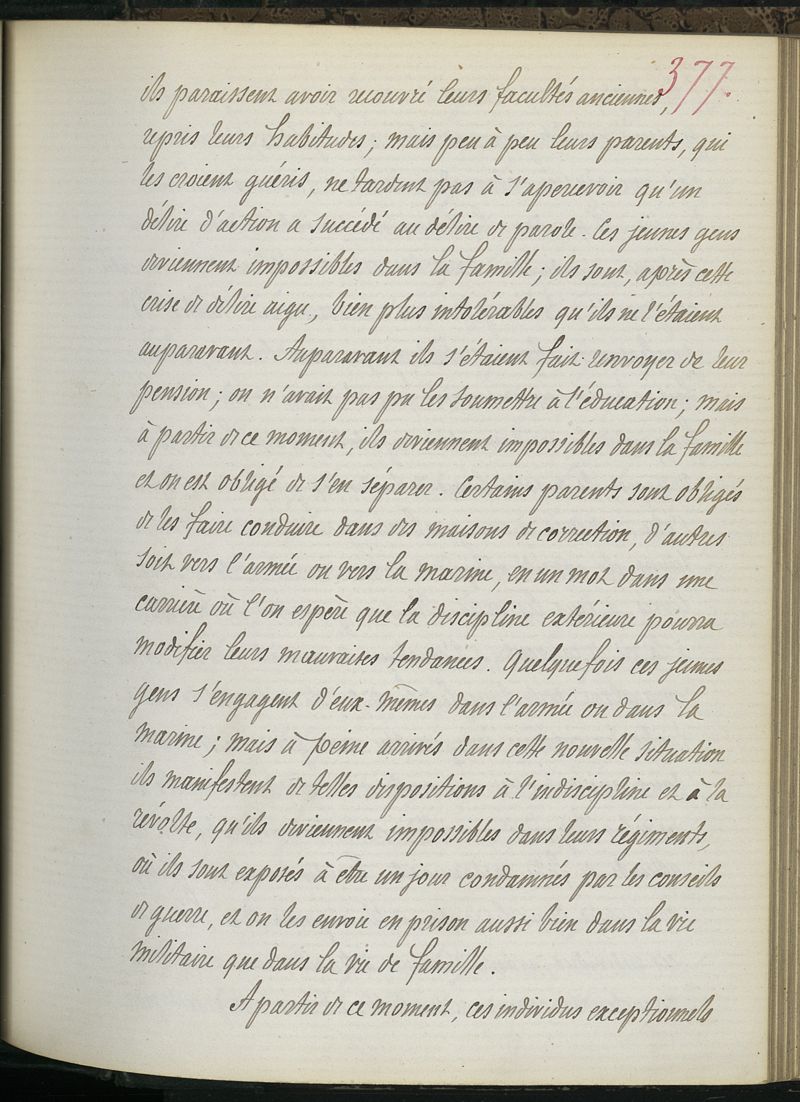 377.
ils paraissent avoir recouvré leurs facultés anciennes,
repris leurs habitudes ; mais peu à peu leurs parents, qui
les croient guéris, ne tardent pas à s'apercevoir qu'un
délire d'action a succédé au délire de parole. Ces jeunes gens
deviennent impossibles dans la famille ; ils sont, après cette
crise de délire aigu, bien plus intolérables qu'ils ne l'étaient
auparavant. Auparavant ils s'étaient fait renvoyer de leur
pension ; on n'avait pas pu les soumettre à l'éducation ; mais
à partir de ce moment, ils deviennent impossibles dans la famille
et on est obligé de s'en séparer. Certains parents sont obligés
de les faire conduire dans des maisons de correction, d'autres
soit vers l'armée ou vers la marine, en un mot dans une
carrière où l'on espère que la discipline extérieure pourra
modifier leurs mauvaises tendances. Quelquefois ces jeunes
gens s'engagent d'eux-mêmes dans l'armée ou dans la
marine ; mais à peine arrivés dans cette nouvelle situation
ils manifestent de telles dispositions à l'indiscipline et à la
révolte, qu'ils deviennent impossibles dans leurs régiments,
où ils sont exposés à être un jour condamnés par les conseils
de guerre, et on les envoie en prison aussi bien dans la vie
militaire que dans la vie de famille.
A partir de ce moment, ces individus exceptionnels